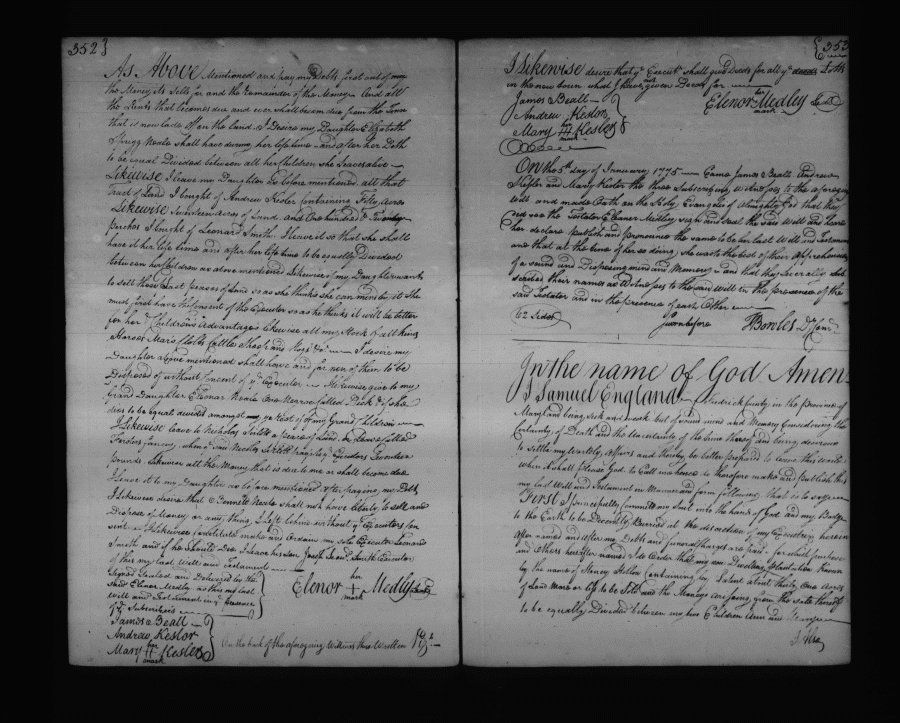 352}
As Above Mentioned and pay my Debts first out of my
the Money its Sells for and the Remainder of the Moneys And all
the Rents that becomes due and ever shall become due from the Time
that is now laid off on the land. I Desire my Daughter Elizabeth
Neale shall have during her life time and after her Deth
to be equal Divided between all her Children she Leaves alive
Likewise I leave my Daughter as before mentioned all that
Tract of Land I bought of Andrew Kesler Containing Fifty Acres
Likewise Seventeen acres of Land and One hundred & Twenty
Perches I bought of Leonard Smith I leave it so that she shall
have it her life time and after her life time to be equally Divided
between her Children as above mentioned Likewise if my Daughter wants
to sell these Last peaces of Land so as she thinks she can mend by it She
must first have the Consent of the Executor so as he thinks it will be better
for her & Childrens Advantage Likewise all my Stock of all kind
Horses Mars Colts Cattle Sheep and Hogs &c I desire my
Daughter above mentioned shall have and for non of them to be
Disposed of without Consent of ye Executor Likewise give to my
Grand Daughter Elenor Neale One Negroe Called Dick & if she
dies to be equal divided amongst ye Rest of my Grand Children
I Likewise leave to Nicholas a Peace of Land in
when ye said pays ye
pounds Likewise all the Money that is due to me or shall become due
I leave it to my Daughter as before mentioned after paying my Debts
I Likewise desire that Bennett Neale shall not have liberty to sell and
Dispose of Money or any thing I left to him without ye Executors Con
sent I Likewise Constitute make and Ordain my sole Executor Leonard
Smith and if he should Die I Leave his Son Joseph Smith Executor
of this my Last will and testament
Signed Sealed and Delivered by the
said Elenor Medley as this my last
Will and Testament in ye presence
of ye Subscribers
her
Elenor + Medley Seal
mark
James Beall
Andrew Keslor
Mary H Kesler
mark
On the back of the aforegoing Will was thus Written
{353
I Likewise desire that ye Executr shall give Deeds for all ye Lotts
in the new town what I have not given Deeds for
her
Elenor Medley Seal
mark
James Beall
Andrew Keslor
her
Mary H Kesler
mark
On the 5th day of January 1775 Came James Beall Andrew
Keslor and Mary Kesler the three Subscribing Witnesses to the aforegoing
Will and made Oath on the Holy Evangels of Almighty God that they
did see the Testator Elenor Medley sign and Seal the said Will and heard
her declare Publish and pronounce the same to be her last Will and Testament
and that at the time of her so doing she was to the best of their apprehension
of a sound and Disposing mind and Memory and that they severally Sub
scribed their names as Witnesses to the said will in the presence of the
said Testator and in the presence of each Other
Sworn before T Bowles Dy Com
(2 Sides)
In the name of God Amen
I Samuel England of Frederick County in the province of
Maryland being sick and weak but of sound mind and Memory Considering the
Certainty of Death and the Uncertainty of the time thereof and being desirous
to settle my Worldly Affairs and thereby be better prepared to leave this world
when it shall please God to Call me hence do therefore make and publish this
my last Will and Testament in Manner and form following that is to say
First & principally I Commit my Soul into the hands of God and my Body
to the Earth to be Decently Burried at the discretion of my Executors herein
after named and after my Debts and funeral charges are paid for which purpose
and Others hereafter named I do Order that my now Dwelling Plantation known
by the name of Containing by Patent about thirty One Acres
of Land More or less to be Sold and the Moneys arrising from the sale thereof
to be equally Divided between my two Children Ann and